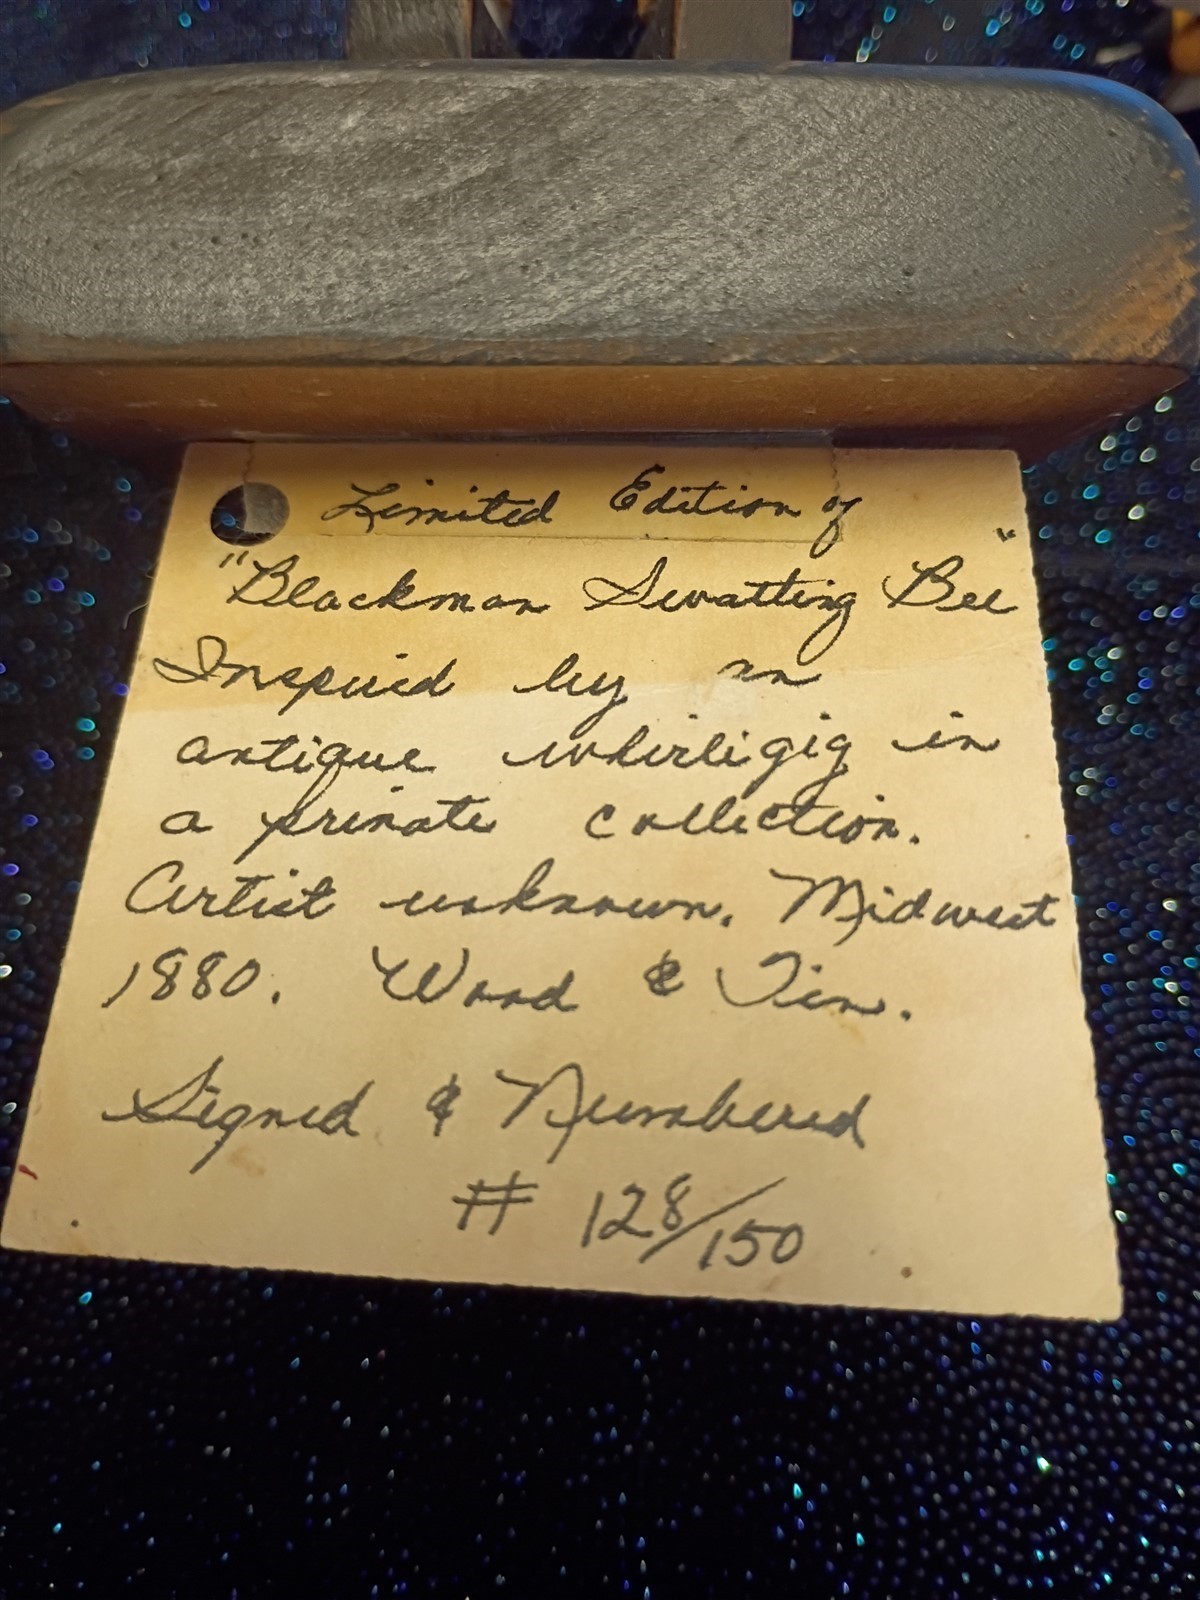 Limited Edition of
"Blackman Swatting Bee"
Inspired by an
antique whirligig in
a private collection.
Artist unknown. Midwest
1880. Wood & Tin.
Signed & Numbered
# 128/150